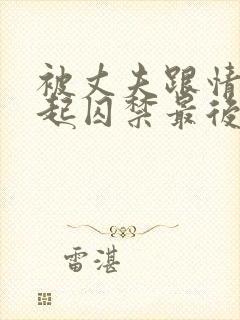 被丈夫跟情
起囚禁最後
雷湛